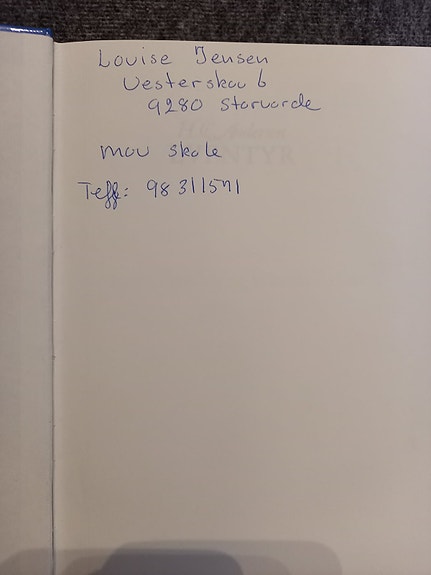 Louise Jensen
Vesterskov 6
9280 Storvorde
Mou skole
Telf: 98 311571